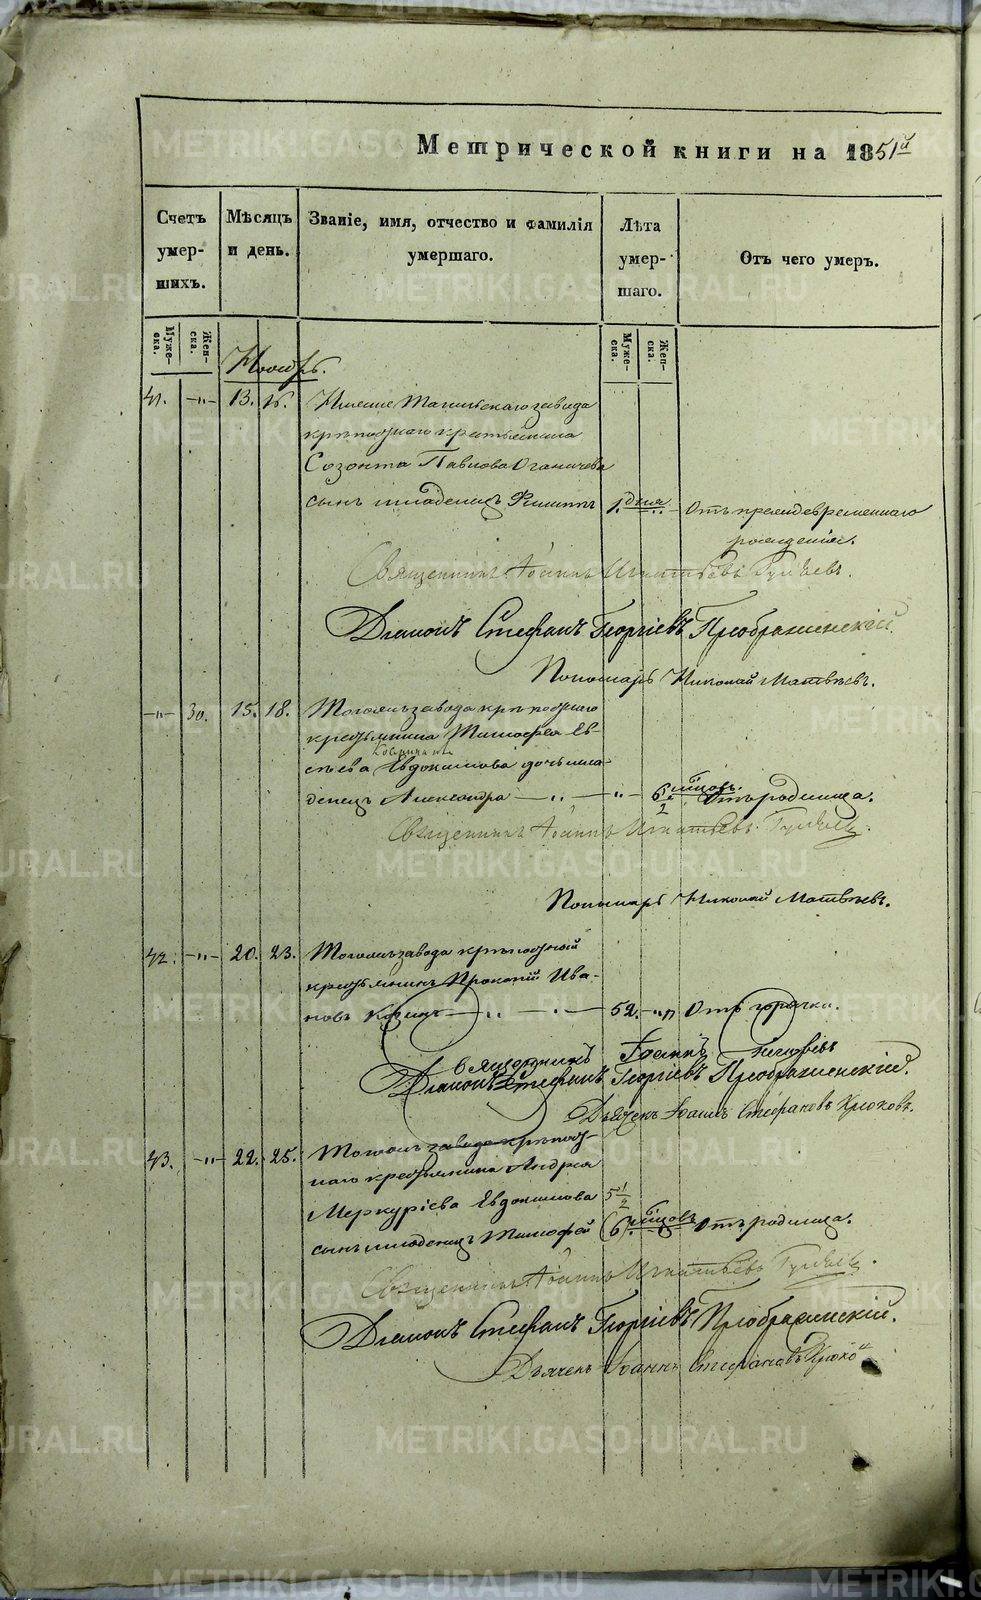 Метрической книги на 1851й
Счетъ умер- шихъ.
Мѣсяцъ и день.
Званіе, имя, отчество и фамилія умершаго.
Лѣта умер- шаго.
Отъ чего умеръ.
Муже- ска.
Жен- ска.
Муже- ска.
Жен- ска.
Ноябрь.
41. -„- 13. 16. Нижне Тагильскаго завода
крѣпостнаго крестьянина
Созонта Павлова
сынъ младенецъ Филиппъ 1. дня - Отъ преждевременнаго
рожденія.
Священникъ Іоаннъ Игнатьевъ
Діаконъ Стефанъ Георгіевъ Преображенскій.
Пономарь Николай Матвѣевъ.
-„- 30. 15. 18. Тогожъ завода крѣпостнаго
крестьянина Тимофея Ев-
сѣева Евдокимова дочь мла-
денецъ Александра — „ — „ 6 1/2 мѣсцовъ. Отъ родимца.
Священникъ Іоаннъ Игнатьевъ
Пономарь Николай Матвѣевъ.
42. -„- 20. 23. Тогожъ завода крѣпостной
крестьянинъ Прокопій Ива-
новъ — „ — „ — 52. -„ Отъ горячки.
Священникъ Іоаннъ
Діаконъ Стефанъ Георгіевъ Преображенскій.
Дьячекъ Іоаннъ Стефановъ Крюковъ.
43. -„- 22. 25. Тогожъ завода крѣпост-
наго крестьянина Андрея
Меркурьева Евдокимова 5 1/2
сынъ младенецъ Тимофей (6). мѣсцовъ Отъ родимца.
Священникъ Іоаннъ Игнатьевъ
Діаконъ Стефанъ Георгіевъ Преображенскій.
Дьячекъ Іоаннъ Стефановъ Крюковъ
METRIKI.GASO-URAL.RU